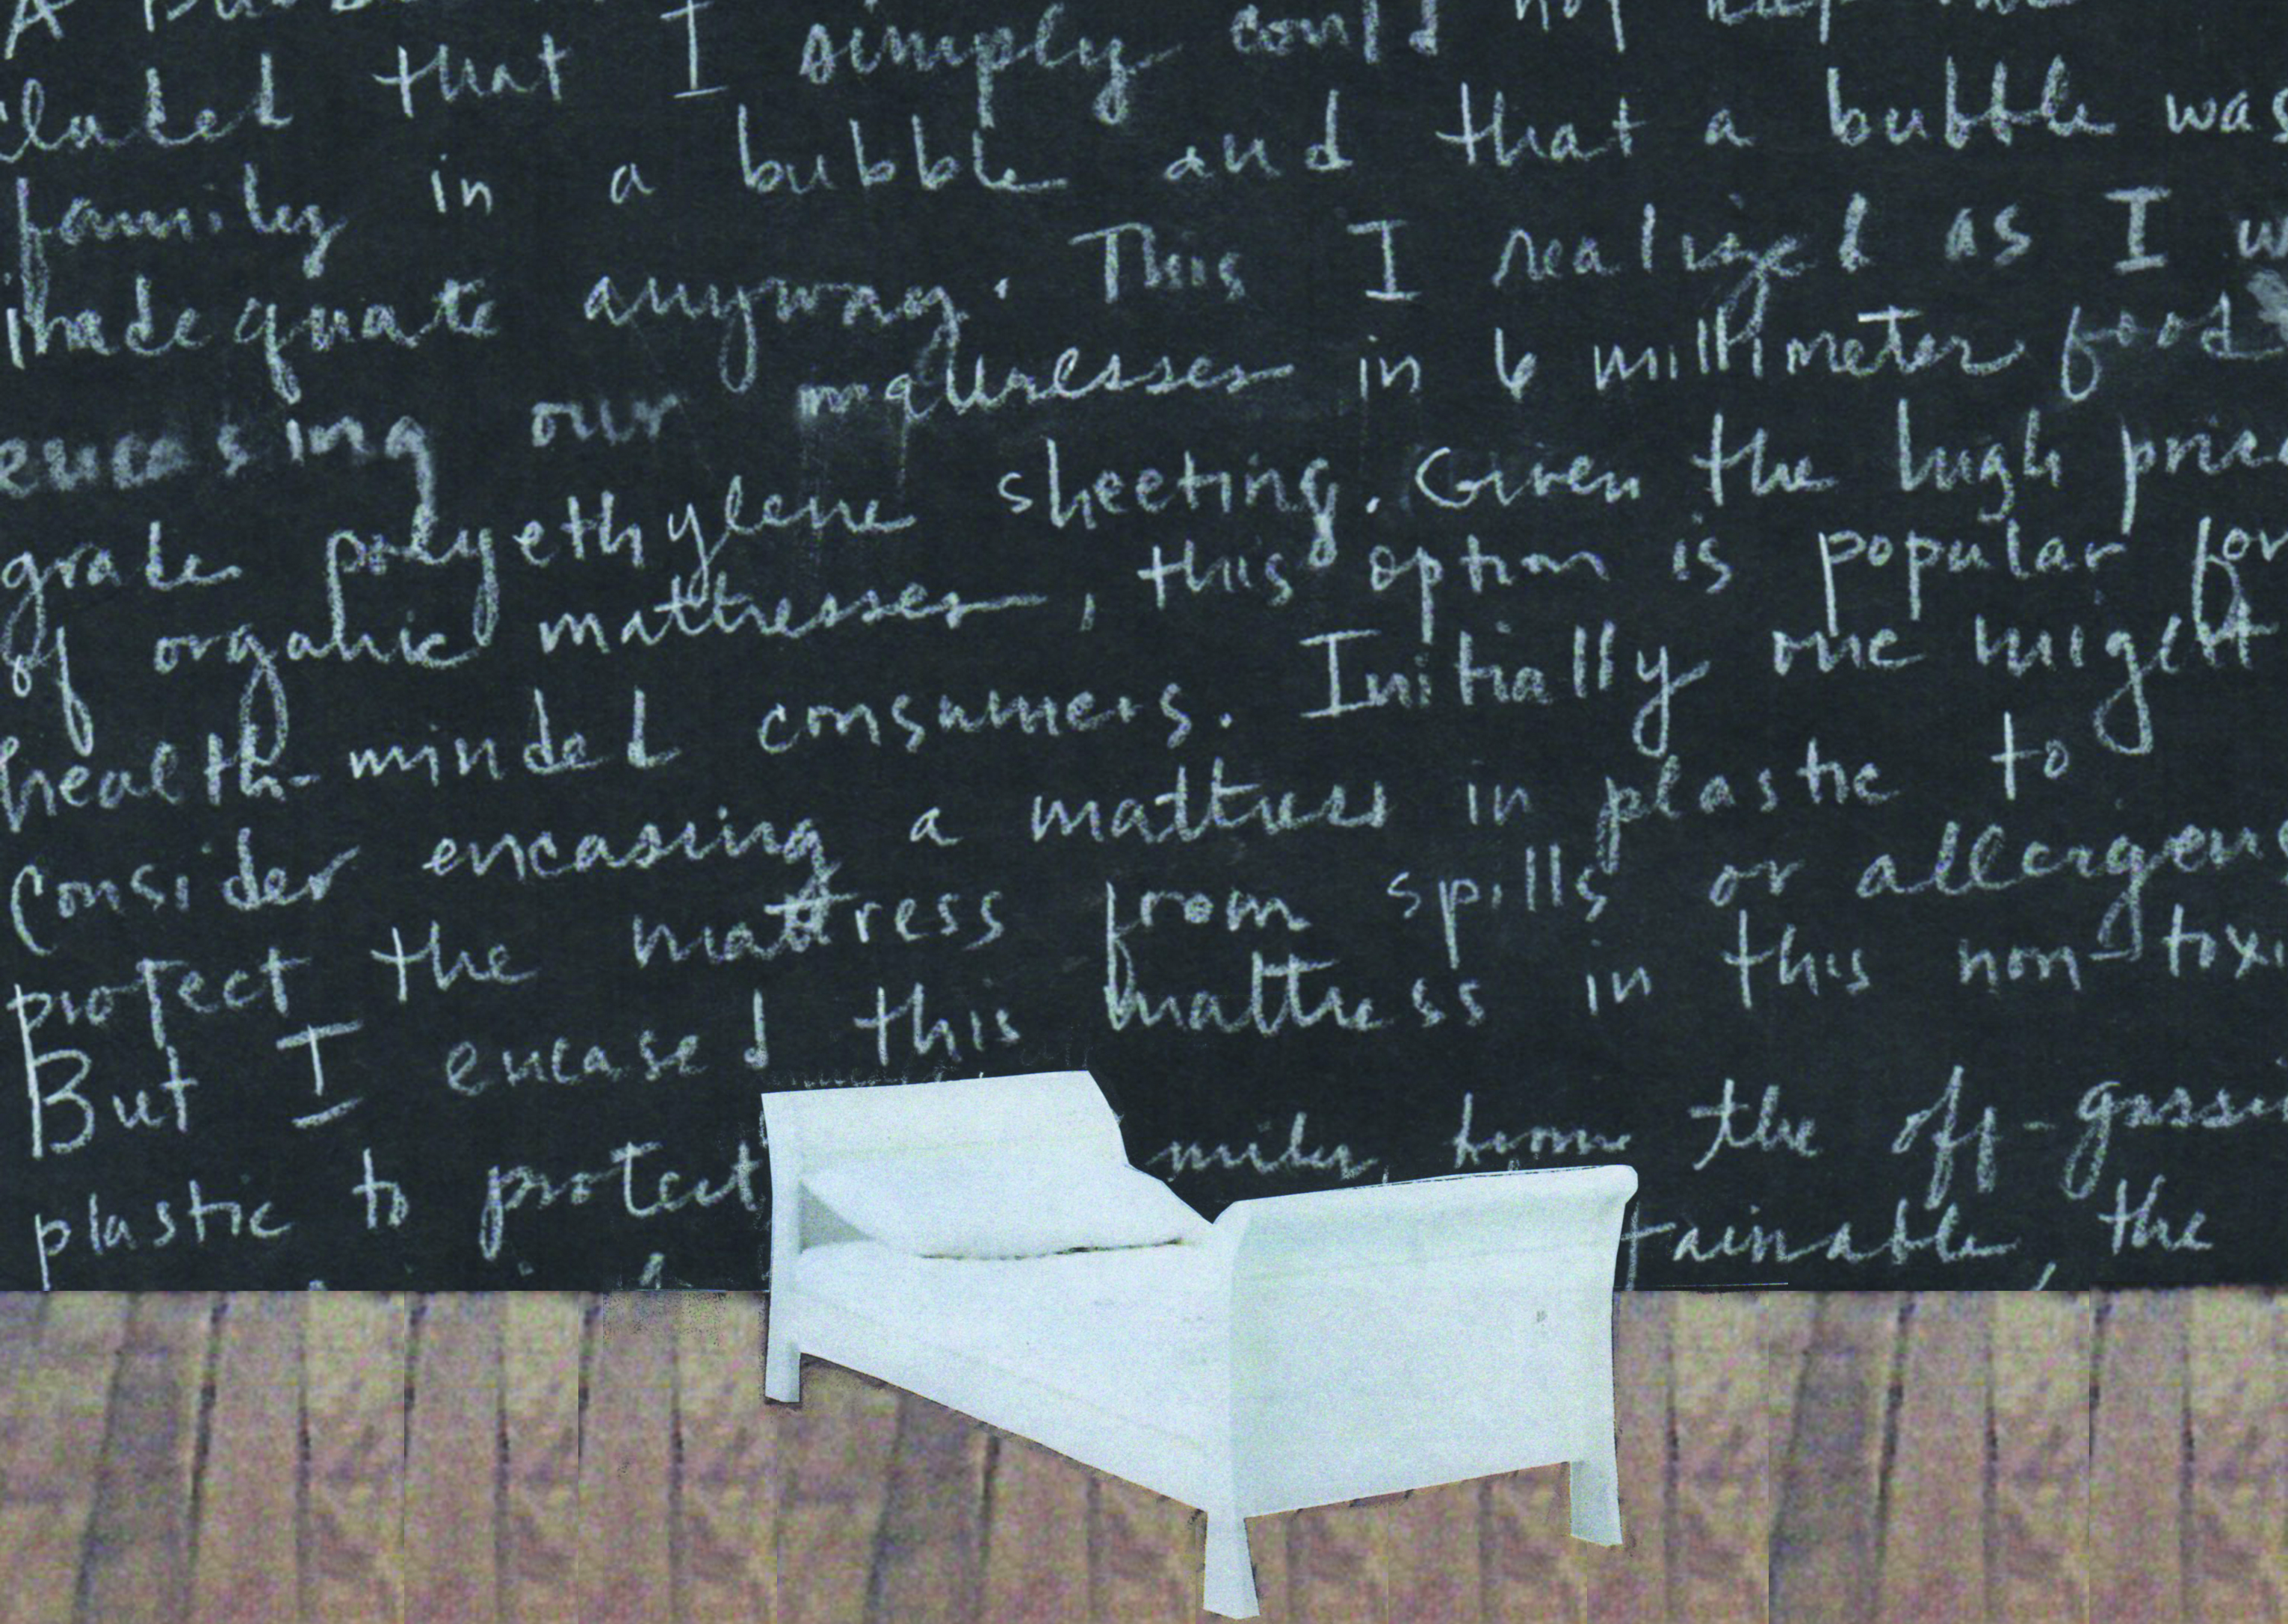 A
cluded that I simply could not keep
family in a bubble and that a bubble was
inadequate anyway. This I realized as I w
encasing our mattresses in 6 millimeter food
grade polyethylene sheeting. Given the high price
of organic mattresses, this option is popular for
health-minded consumers. Initially one might
Consider encasing a mattress in plastic to
protect the mattress from spills or allergens
But I encased this mattress in this non-toxi
plastic to protect mily from the off-gassi
tainable, the